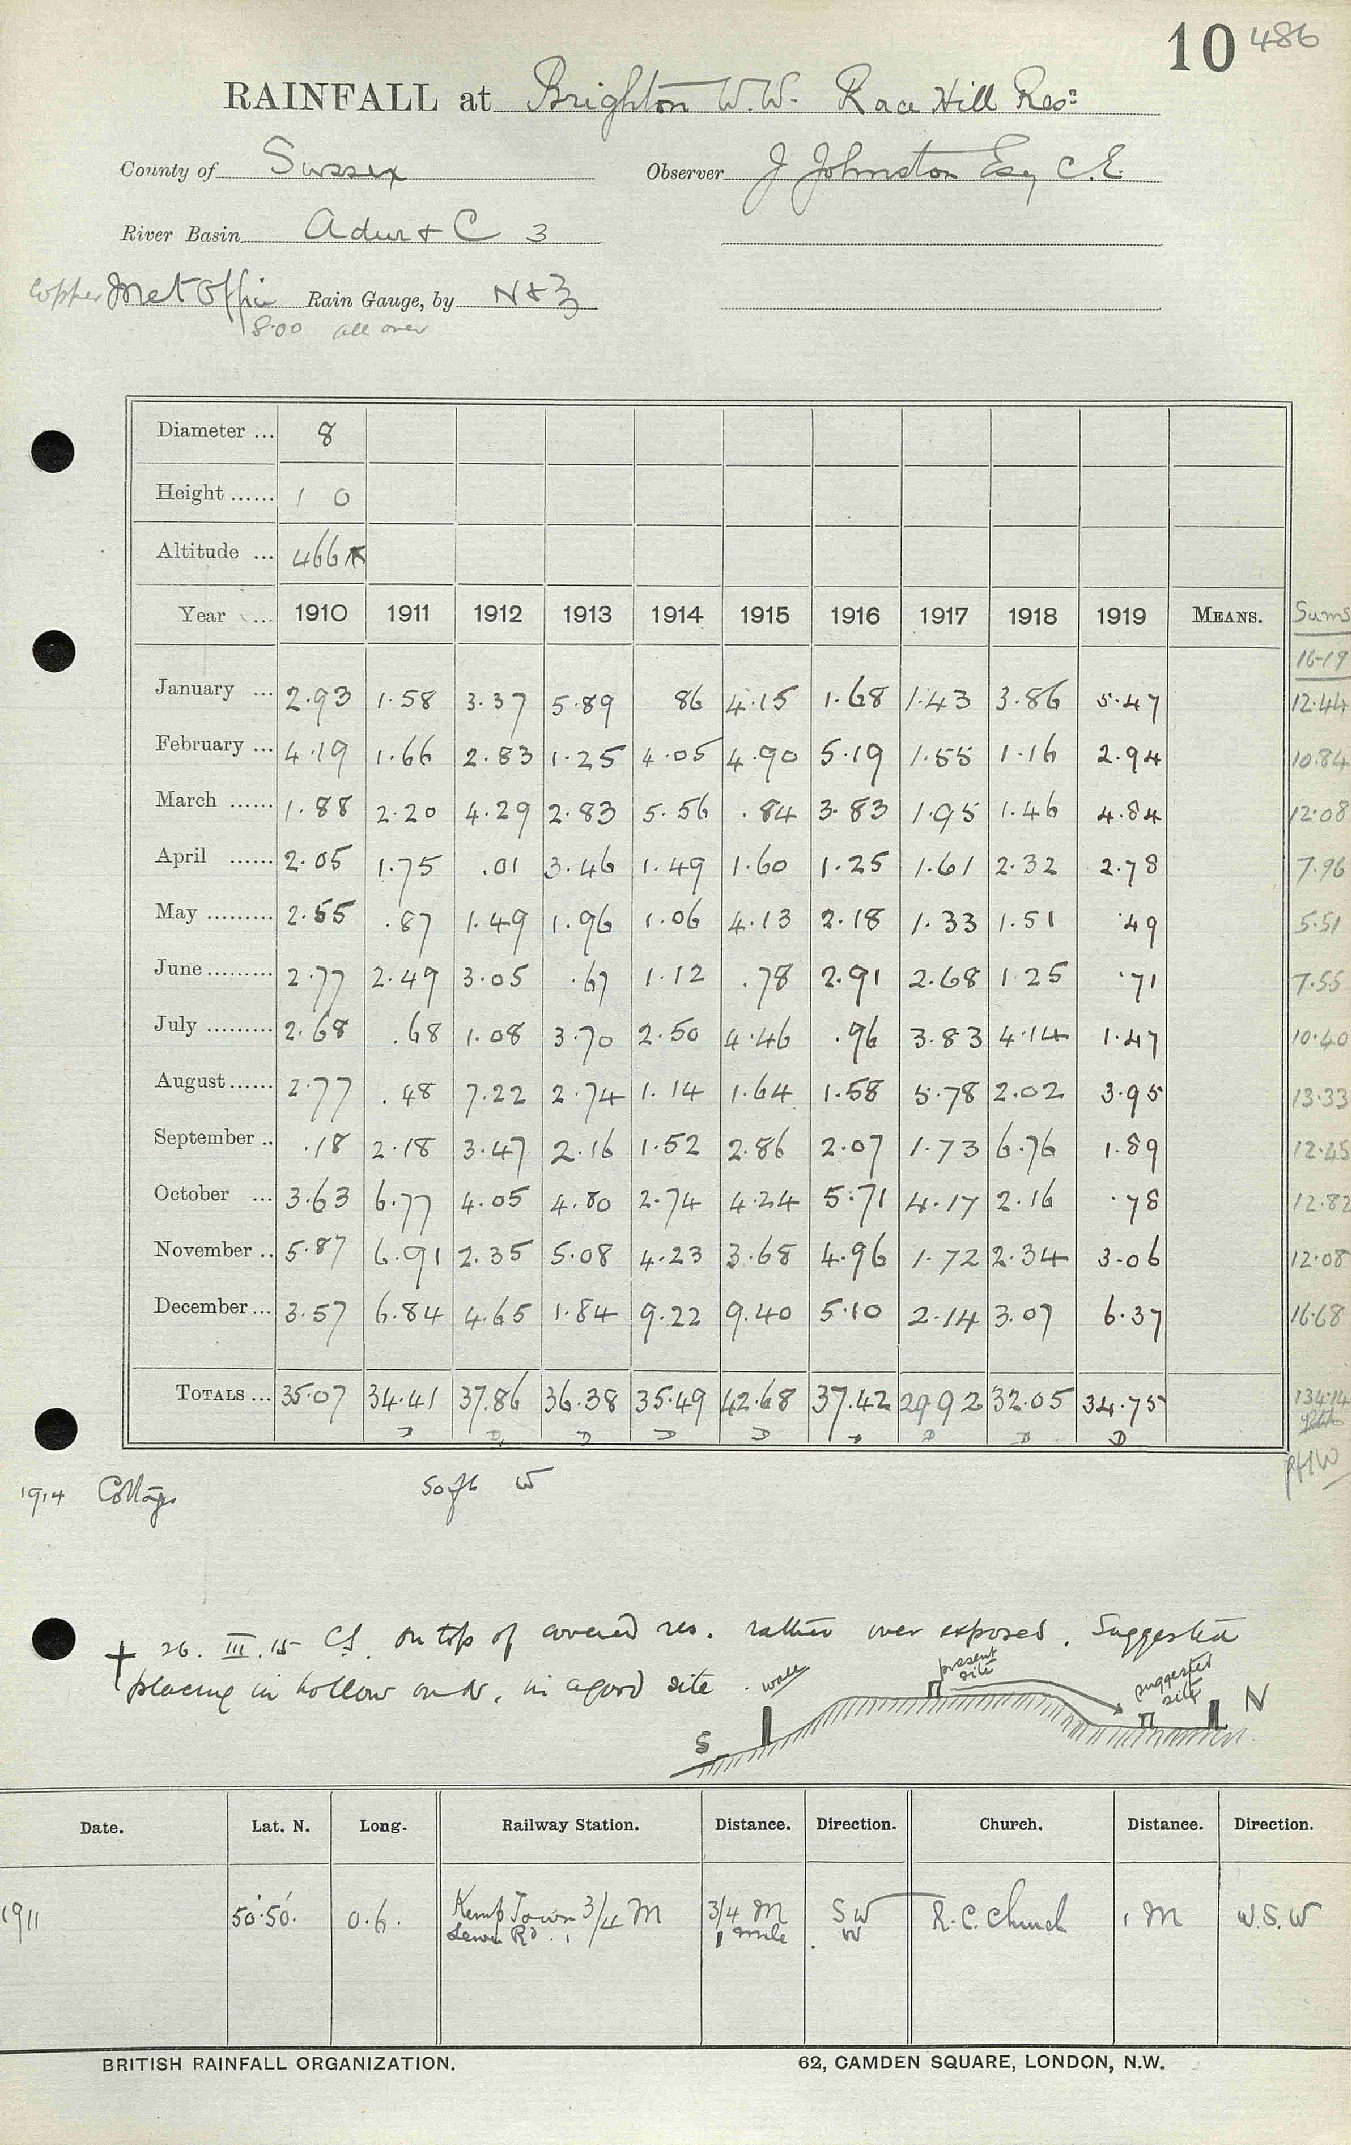 10 486
RAINFALL at Brighton W.W. Race Hill Res:
County of Sussex Observer J Johnston Esq C.E.
River Basin Adur & C 3
Copper Met Office Rain Gauge, by N & Z
8.00 all over
Diameter ... 8
Height ...... 1 0
Altitude ... 466
Year ... 1910 1911 1912 1913 1914 1915 1916 1917 1918 1919 MEANS. Sums
16-19
January ... 2.93 1.58 3.37 5.89 86 4.15 1.68 1.43 3.86 5.47 12.44
February ... 4.19 1.66 2.83 1.25 4.05 4.90 5.19 1.55 1.16 2.94 10.84
March ...... 1.88 2.20 4.29 2.83 5.56 .84 3.83 1.95 1.46 4.84 12.08
April ...... 2.05 1.75 .01 3.46 1.49 1.60 1.25 1.61 2.32 2.78 7.96
May ......... 2.55 .87 1.49 1.96 1.06 4.13 2.18 1.33 1.51 .49 5.51
June ......... 2.77 2.49 3.05 .67 1.12 .78 2.91 2.68 1.25 .71 7.55
July ......... 2.68 .68 1.08 3.70 2.50 4.46 .96 3.83 4.14 1.47 10.40
August ...... 2.77 .48 7.22 2.74 1.14 1.64 1.58 5.78 2.02 3.95 13.33
September .. .18 2.18 3.47 2.16 1.52 2.86 2.07 1.73 6.76 1.89 12.45
October ... 3.63 6.77 4.05 4.80 2.74 4.24 5.71 4.17 2.16 .78 12.82
November .. 5.87 6.91 2.35 5.08 4.23 3.68 4.96 1.72 2.34 3.06 12.08
December ... 3.57 6.84 4.65 1.84 9.22 9.40 5.10 2.14 3.07 6.37 16.68
TOTALS ... 35.07 34.41 37.86 36.38 35.49 42.68 37.42 29.92 32.05 34.75 134.14
PHW
1914 Cottage 50ft W
† 26. III. 15 CS. On top of covered res. rather over exposed. Suggested
placing in hollow on N, in a good site.
wall present site suggested site
S N
Date. Lat. N. Long. Railway Station. Distance. Direction. Church. Distance. Direction.
1911 50.50'. 0.6. Kemp Town 3/4 M 3/4 M SW R.C. Church 1 M W.S.W
Lewes Rd. 1 mile W
BRITISH RAINFALL ORGANIZATION. 62, CAMDEN SQUARE, LONDON, N.W.